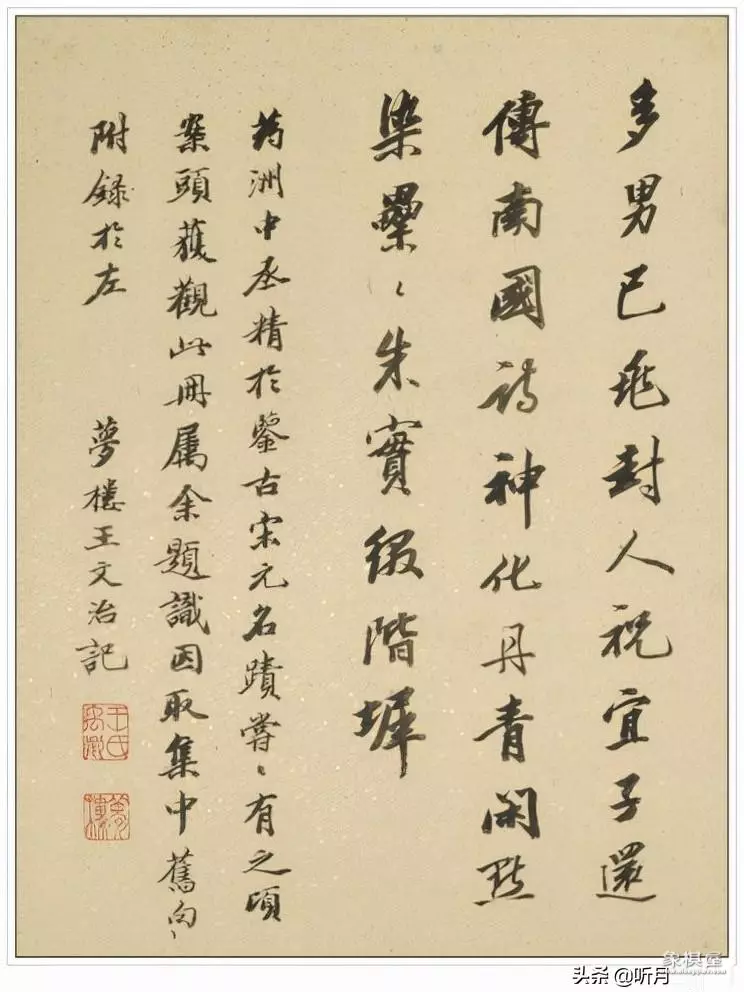 多男已飛封人祝宜子還
傳南國詩神化丹青開點
染纍〻朱實綴階墀
藥洲中丞精於鑒古宋元名蹟嘗〻有之頃
案頭獲觀此冊屬余題識因取集中舊句
附錄於左
夢樓王文治記
王氏禹卿
夢樓
象棋屋
头条 @听月